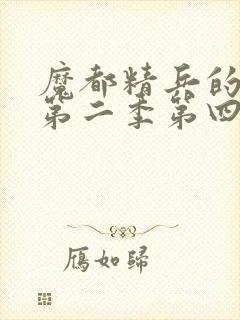 魔都精兵的
第二季第四
雁如歸